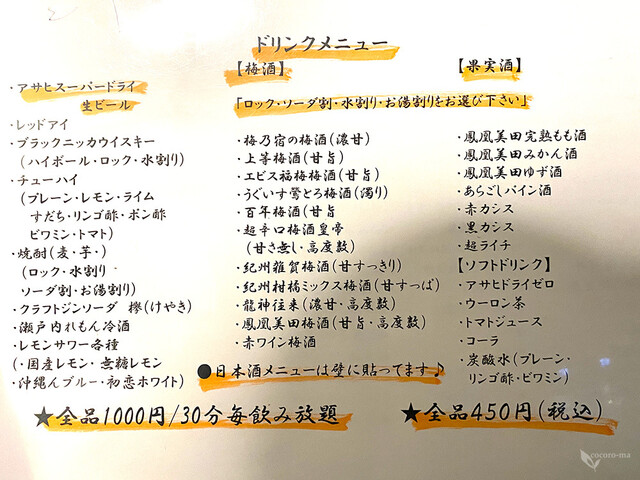 ドリンクメニュー
・アサヒスーパードライ
生ビール
・レッドアイ
・ブラックニッカウイスキー
(ハイボール・ロック・水割り)
・チューハイ
(プレーン・レモン・ライム
すだち・リンゴ酢・ポン酢
ビワミン・トマト)
・焼酎(麦・芋・)
(ロック・水割り
ソーダ割・お湯割り)
・クラフトジンソーダ 欅(けやき)
・瀬戸内れもん冷酒
・レモンサワー各種
(・国産レモン・無糖レモン
・沖縄んブルー・初恋ホワイト)
【梅酒】
「ロック・ソーダ割・水割り・お湯割りをお選び下さい」
・梅乃宿の梅酒(濃甘)
・上等梅酒(甘旨)
・ヱビス福梅梅酒(甘旨)
・うぐいす鶯とろ梅酒(濁り)
・百年梅酒(甘旨
・超辛口梅酒皇帝
(甘さ無し・高度数)
・紀州雑賀梅酒(甘すっきり)
・紀州柑橘ミックス梅酒(甘すっぱ)
・龍神往来(濃甘・高度数)
・鳳凰美田梅酒(甘旨・高度数)
・赤ワイン梅酒
●日本酒メニューは壁に貼ってます♪
【果実酒】
・鳳凰美田完熟もも酒
・鳳凰美田みかん酒
・鳳凰美田ゆず酒
・あらごしパイン酒
・赤カシス
・黒カシス
・超ライチ
【ソフトドリンク】
・アサヒドライゼロ
・ウーロン茶
・トマトジュース
・コーラ
・炭酸水(プレーン・
リンゴ酢・ビワミン)
★全品1000円/30分毎飲み放題
★全品450円(税込)
cocoro-ma